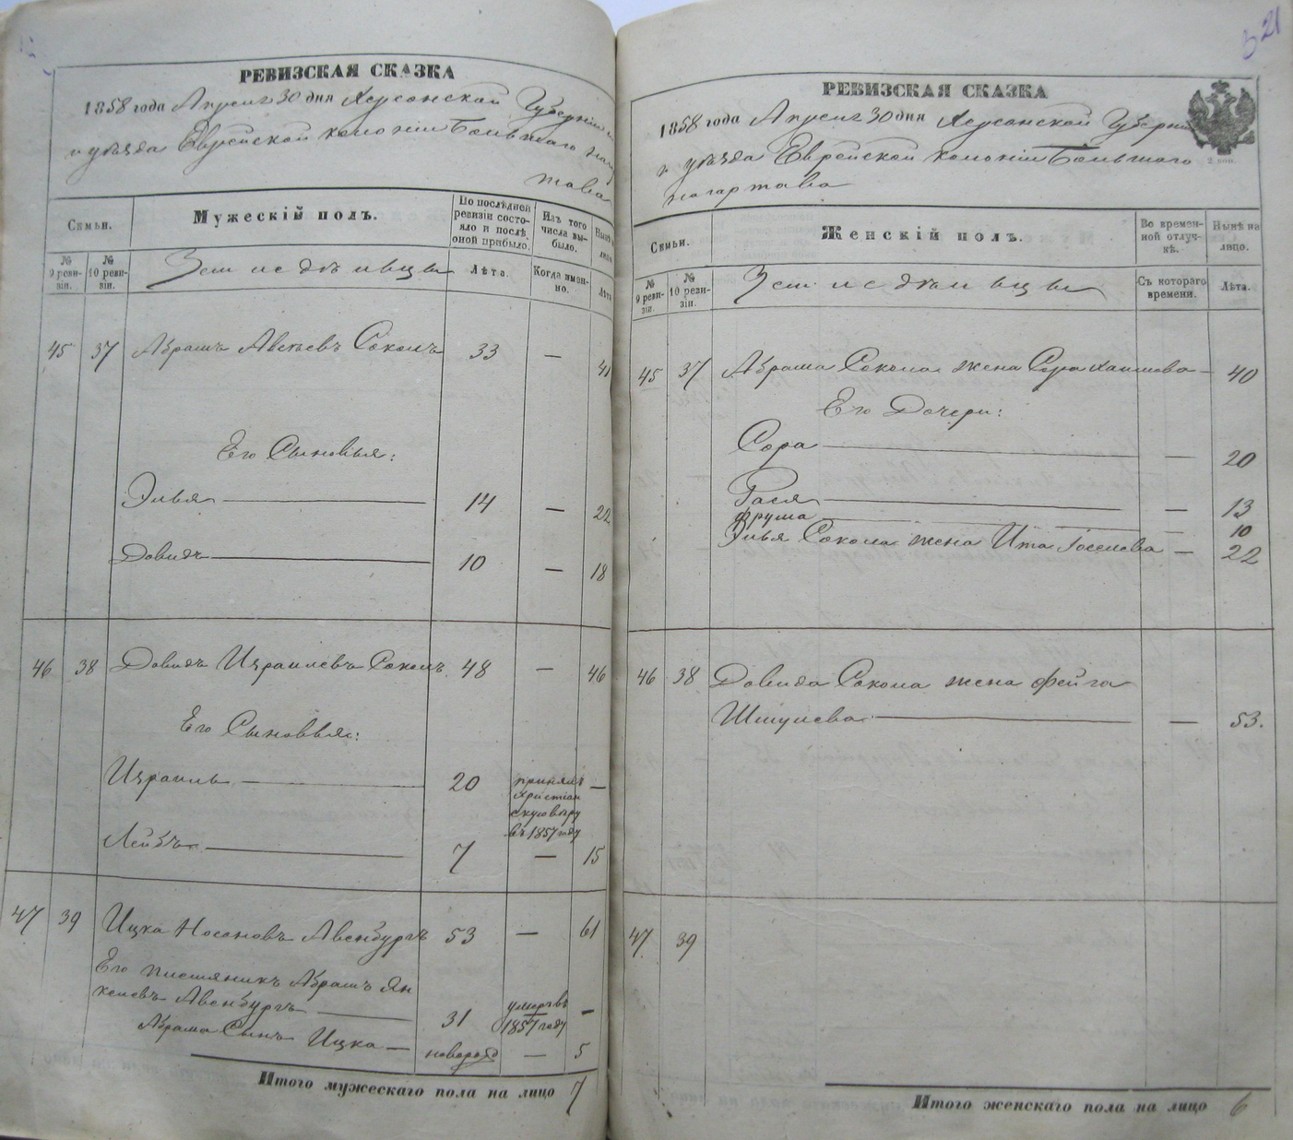 РЕВИЗСКАЯ СКАЗКА
1858 года Апреля 30 дня Херсонской Губерніи
и уѣзда Еврейской колоніи Большаго наг
това
Семьи.
Мужескій полъ.
По послѣдней ревизіи состояло и послѣ оной прибыло.
Изъ того числа выбыло.
№ 9 ревизіи.
№ 10 ревизіи.
Земледѣльцы
Лѣта.
Когда именно.
Лѣта
45 37 Абрамъ Соколъ 33 — 41
Его Сыновья:
Элья 14 — 22
Довидъ 10 — 18
46 38 Довидъ Израилевъ Соколъ 48 — 46
Его Сыновья:
Израиль 20 принялъ христіанскую вѣру въ 1857 году —
Лейбъ 7 — 15
47 39 Ицка Носоновъ Авенбургъ 53 — 61
Его племяникъ Абрамъ Ян
келевъ Авенбургъ 31 умеръ въ 1857 году —
Абрама Сынъ Ицка — новорожд — 5
Итого мужескаго пола на лицо 7
21
РЕВИЗСКАЯ СКАЗКА
1858 года Апреля 30 дня Херсонской Губерніи
и уѣзда Еврейской колоніи Большаго
нагартава
2 коп.
Семьи.
Женскій полъ.
Во временной отлучкѣ.
Нынѣ на лицо.
№ 9 ревизіи.
№ 10 ревизіи.
Земледѣльцы
Съ котораго времени.
Лѣта.
45 37 Абрама Сокола жена Сора Хаимова — 40
Его Дочери:
Сора — 20
Бася — 13
Фрума — 10
Элья Сокола жена Ита Іоселева — 22
46 38 Довида Сокола жена Фейга
Шмулева — 53.
47 39
Итого женскаго пола на лицо 6